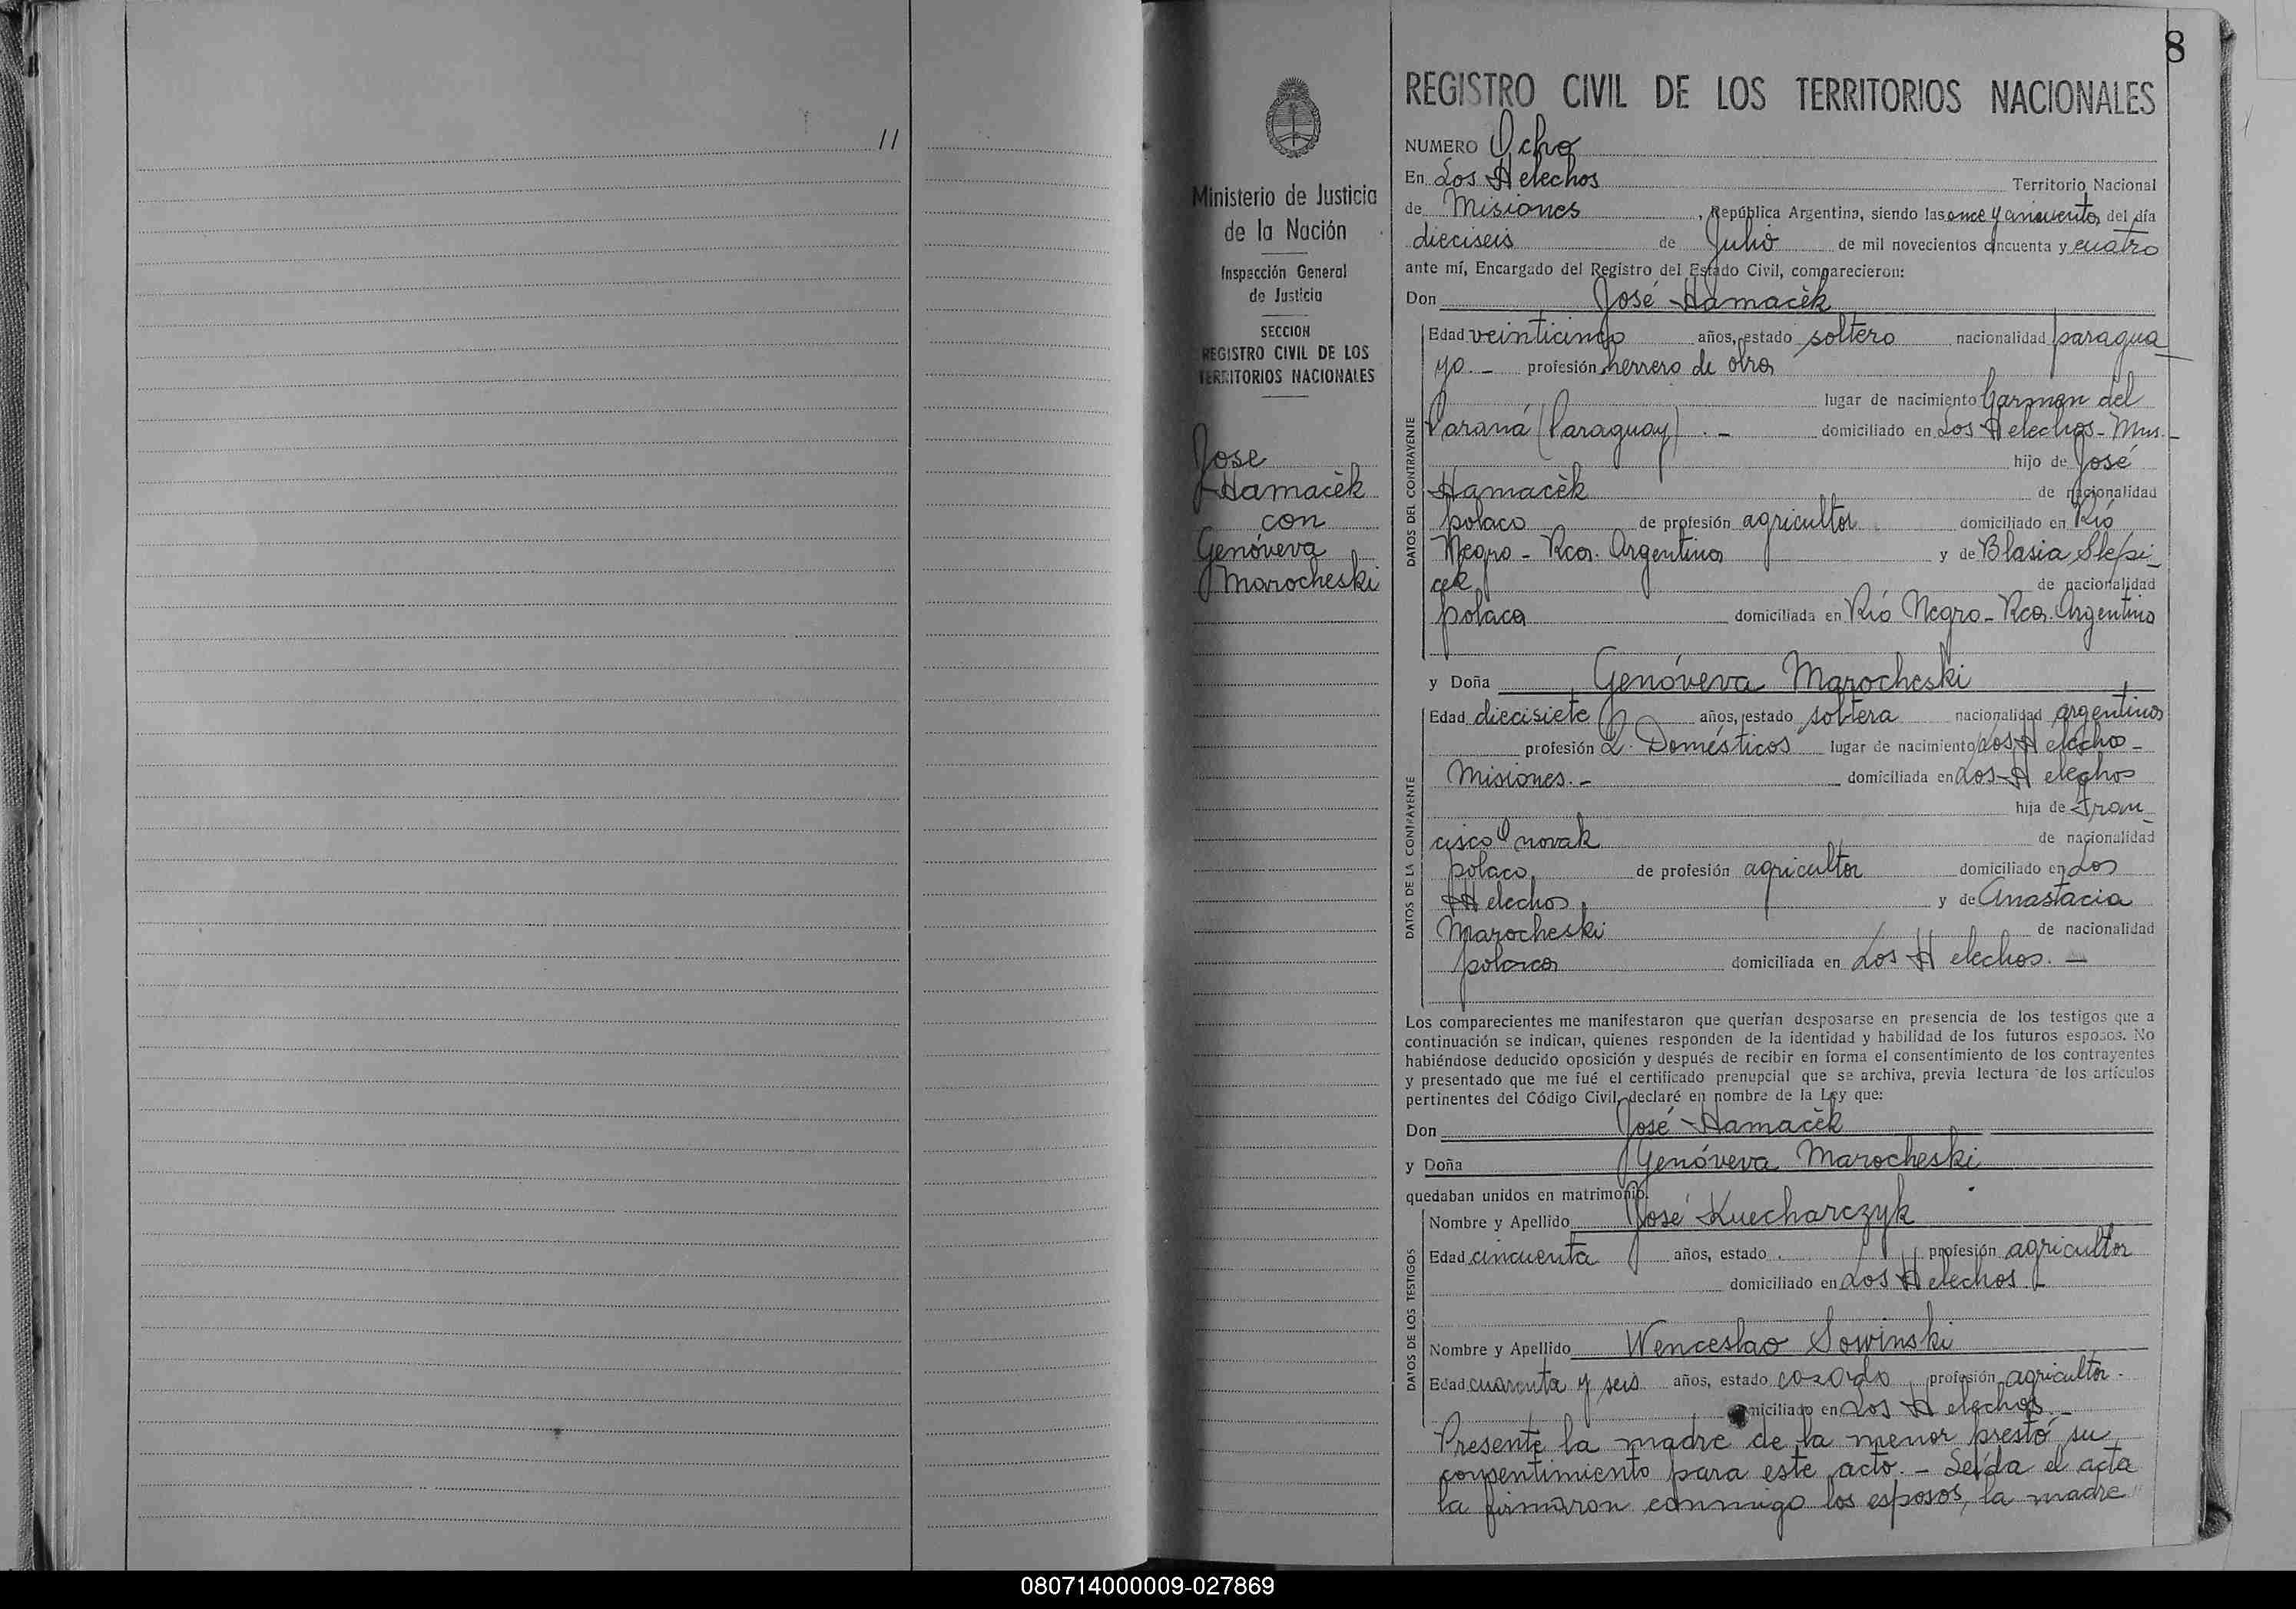 11
8
Ministerio de Justicia
de la Nación
Inspección General
de Justicia
SECCION
REGISTRO CIVIL DE LOS
TERRITORIOS NACIONALES
Jose
Hamacèk
con
Genóveva
Marocheski
REGISTRO CIVIL DE LOS TERRITORIOS NACIONALES
NUMERO Ocho
En Los Helechos Territorio Nacional
de Misiones, República Argentina, siendo las once y cincuenta del día
dieciseis de Julio de mil novecientos cincuenta y cuatro
ante mí, Encargado del Registro del Estado Civil, comparecieron:
Don José Hamacèk
DATOS DEL CONTRAYENTE
Edad veinticinco años, estado soltero nacionalidad paragua
yo.- profesión herrero de obra
lugar de nacimiento Carmen del
Paraná (Paraguay).- domiciliado en Los Helechos-Mns.-
hijo de José
Hamacèk de nacionalidad
polaco de profesión agricultor domiciliado en Río
Negro-Rca. Argentina y de Blasia Slepi-
cek de nacionalidad
polaca domiciliada en Río Negro-Rca. Argentina
y Doña Genóveva Marocheski
DATOS DE LA CONTRAYENTE
Edad diecisiete años, estado soltera nacionalidad argentina
profesión Q. Domésticos lugar de nacimiento Los Helechos-
Misiones.- domiciliada en Los Helechos
hija de Fran-
cisco Novak de nacionalidad
polaco de profesión agricultor domiciliado en Los
Helechos y de Anastacia
Marocheski de nacionalidad
polaca domiciliada en Los Helechos.-
Los comparecientes me manifestaron que querían desposarse en presencia de los testigos que a
continuación se indican, quienes responden de la identidad y habilidad de los futuros esposos. No
habiéndose deducido oposición y después de recibir en forma el consentimiento de los contrayentes
y presentado que me fué el certificado prenupcial que se archiva, previa lectura de los artículos
pertinentes del Código Civil, declaré en nombre de la Ley que:
Don José Hamacèk
y Doña Genóveva Marocheski
quedaban unidos en matrimonio.
DATOS DE LOS TESTIGOS
Nombre y Apellido José Kuecharczyk
Edad cincuenta años, estado . profesión agricultor
domiciliado en Los Helechos.-
Nombre y Apellido Wenceslao Sowinski
Edad cuarenta y seis años, estado casado profesión agricultor.
domiciliado en Los Helechos.-
Presente la madre de la menor prestó su
consentimiento para este acto.- Leída el acta
la firmaron conmigo los esposos, la madre
080714000009-027869